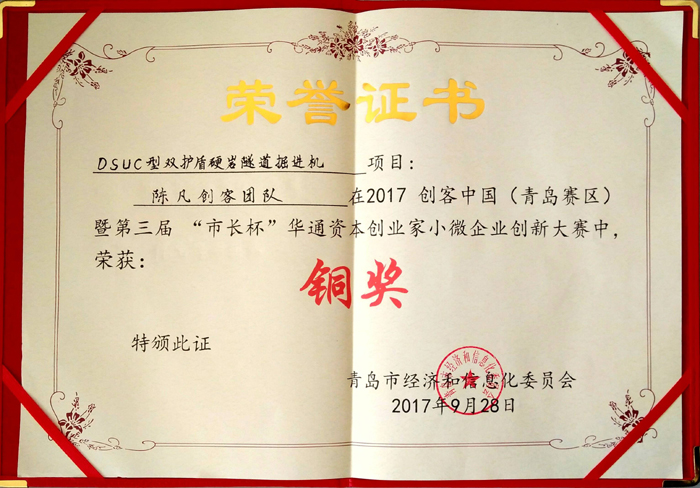 荣誉证书
DSUC型双护盾硬岩隧道掘进机 项目:
陈凡创客团队 在2017 创客中国（青岛赛区）
暨第三届 “市长杯”华通资本创业家小微企业创新大赛中,
荣获:
铜奖
特颁此证
青岛市经济和信息化委员会
2017年9月28日